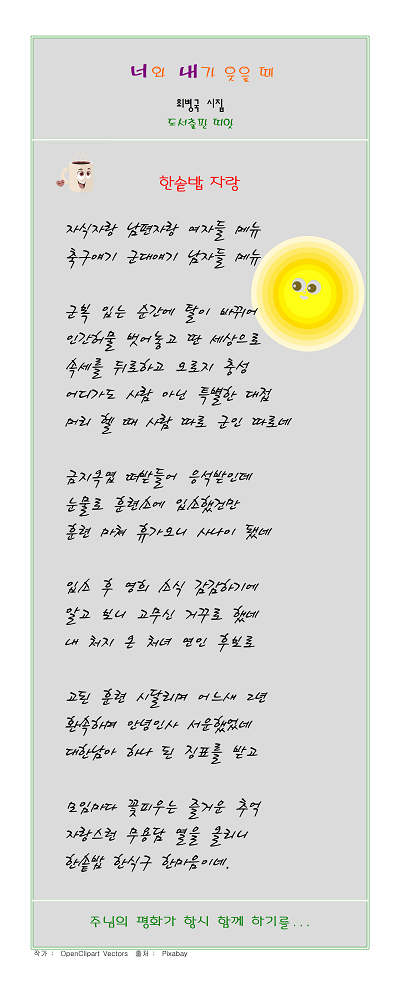 너와 내가 웃을 때
최병국 시집
도서출판 띠앗
한솥밥 자랑
자식자랑 남편자랑 여자들 메뉴
축구얘기 군대얘기 남자들 메뉴
군복 입는 순간에 탈이 바뀌어
인간허물 벗어놓고 딴 세상으로
속세를 뒤로하고 오로지 충성
어디가도 사람 아닌 특별한 대접
머리 헬 때 사람 따로 군인 따로네
금지옥엽 떠받들어 응석받인데
눈물로 훈련소에 입소했건만
훈련 마쳐 휴가오니 사나이 됐네
입소 후 영희 소식 감감하기에
알고 보니 고무신 거꾸로 했네
내 처지 온 처녀 연인 후보로
고된 훈련 시달리며 어느새 2년
환속하며 안녕인사 서운했었네
대한남아 하나 된 징표를 받고
모임마다 꽃피우는 즐거운 추억
자랑스런 무용담 열을 올리니
한솥밥 한식구 한마음이네.
주님의 평화가 항시 함께 하기를...
작가 : OpenClipart Vectors 출처 : Pixabay